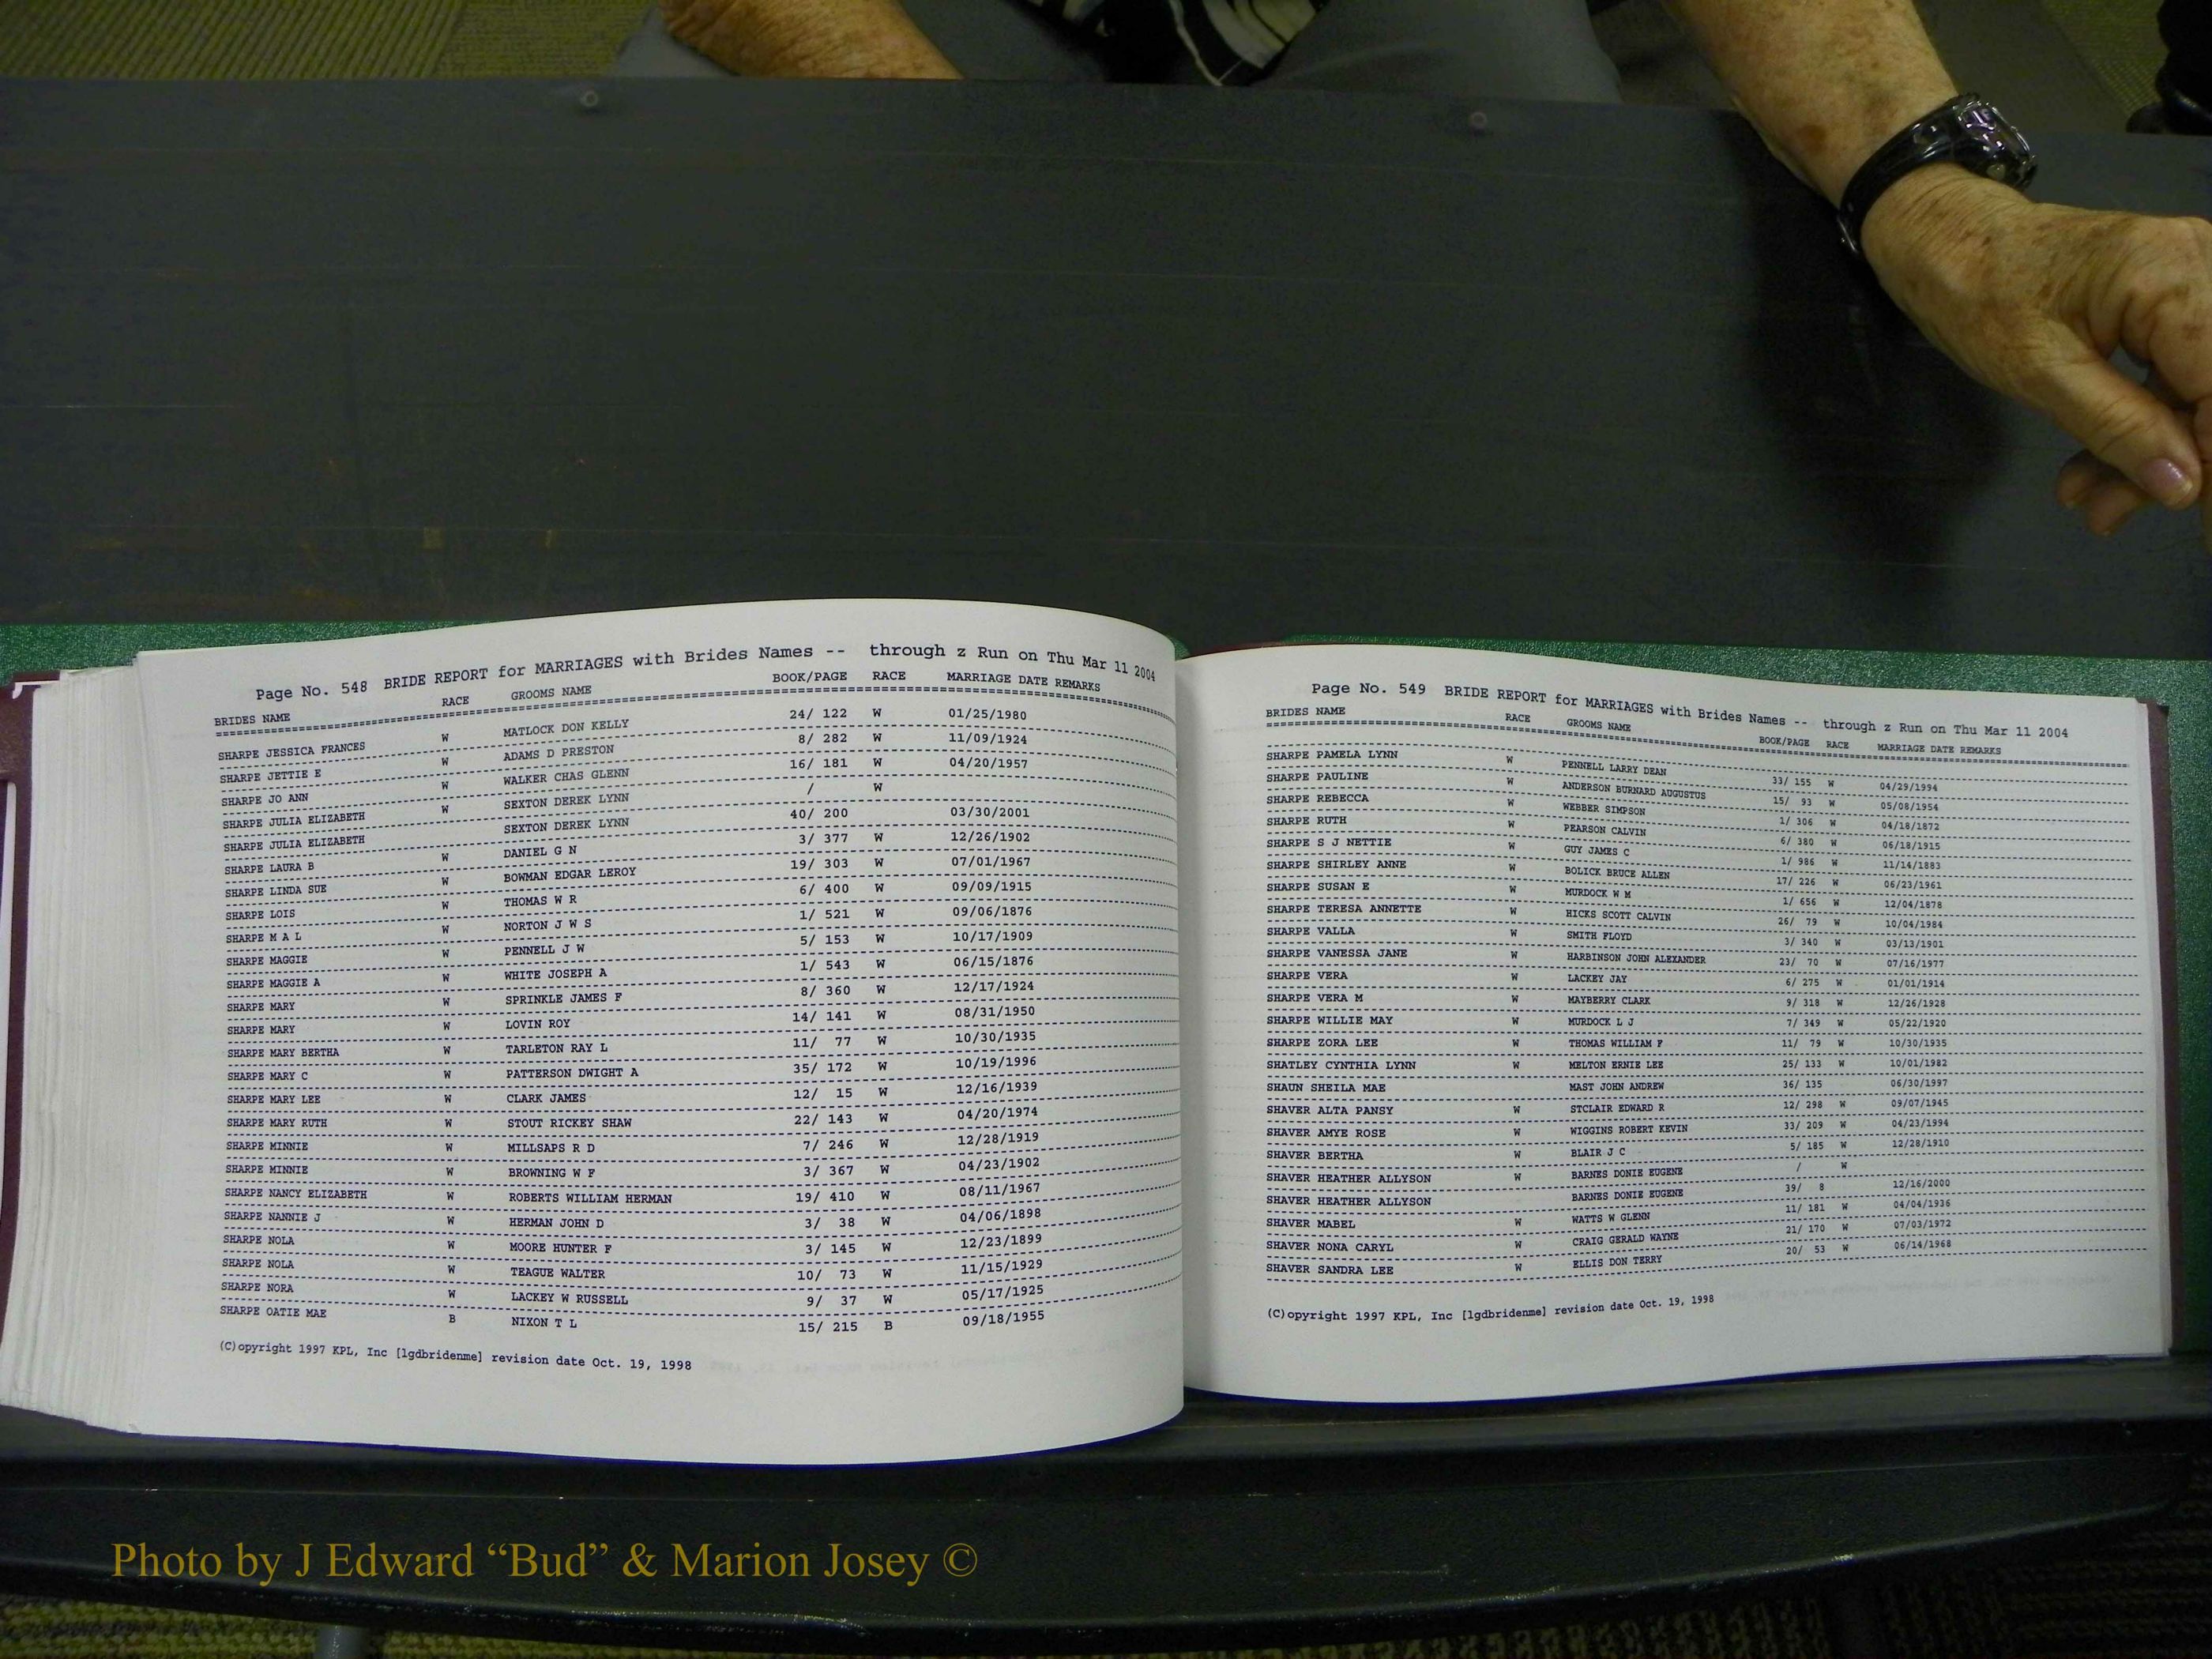 Page No. 548 BRIDE REPORT for MARRIAGES with Brides Names -- through z Run on Thu Mar 11 2004
BRIDES NAME RACE GROOMS NAME BOOK/PAGE RACE MARRIAGE DATE REMARKS
SHARPE JESSICA FRANCES W MATLOCK DON KELLY 24/ 122 W 01/25/1980
SHARPE JETTIE E W ADAMS D PRESTON 8/ 282 W 11/09/1924
SHARPE JO ANN W WALKER CHAS GLENN 16/ 181 W 04/20/1957
SHARPE JULIA ELIZABETH W SEXTON DEREK LYNN / W
SHARPE JULIA ELIZABETH SEXTON DEREK LYNN 40/ 200 03/30/2001
SHARPE LAURA B W DANIEL G N 3/ 377 W 12/26/1902
SHARPE LINDA SUE W BOWMAN EDGAR LEROY 19/ 303 W 07/01/1967
SHARPE LOIS W THOMAS W R 6/ 400 W 09/09/1915
SHARPE M A L W NORTON J W S 1/ 521 W 09/06/1876
SHARPE MAGGIE W PENNELL J W 5/ 153 W 10/17/1909
SHARPE MAGGIE A W WHITE JOSEPH A 1/ 543 W 06/15/1876
SHARPE MARY W SPRINKLE JAMES F 8/ 360 W 12/17/1924
SHARPE MARY W LOVIN ROY 14/ 141 W 08/31/1950
SHARPE MARY BERTHA W TARLETON RAY L 11/ 77 W 10/30/1935
SHARPE MARY C W PATTERSON DWIGHT A 35/ 172 W 10/19/1996
SHARPE MARY LEE W CLARK JAMES 12/ 15 W 12/16/1939
SHARPE MARY RUTH W STOUT RICKEY SHAW 22/ 143 W 04/20/1974
SHARPE MINNIE W MILLSAPS R D 7/ 246 W 12/28/1919
SHARPE MINNIE W BROWNING W F 3/ 367 W 04/23/1902
SHARPE NANCY ELIZABETH W ROBERTS WILLIAM HERMAN 19/ 410 W 08/11/1967
SHARPE NANNIE J W HERMAN JOHN D 3/ 38 W 04/06/1898
SHARPE NOLA W MOORE HUNTER F 3/ 145 W 12/23/1899
SHARPE NOLA W TEAGUE WALTER 10/ 73 W 11/15/1929
SHARPE NORA W LACKEY W RUSSELL 9/ 37 W 05/17/1925
SHARPE OATIE MAE B NIXON T L 15/ 215 B 09/18/1955
(C)opyright 1997 KPL, Inc [lgdbridenme] revision date Oct. 19, 1998
Page No. 549 BRIDE REPORT for MARRIAGES with Brides Names -- through z Run on Thu Mar 11 2004
BRIDES NAME RACE GROOMS NAME BOOK/PAGE RACE MARRIAGE DATE REMARKS
SHARPE PAMELA LYNN W PENNELL LARRY DEAN 33/ 155 W 04/29/1994
SHARPE PAULINE W ANDERSON BURNARD AUGUSTUS 15/ 93 W 05/08/1954
SHARPE REBECCA W WEBBER SIMPSON 1/ 306 W 04/18/1872
SHARPE RUTH W PEARSON CALVIN 6/ 380 W 06/18/1915
SHARPE S J NETTIE W GUY JAMES C 1/ 986 W 11/14/1883
SHARPE SHIRLEY ANNE W BOLICK BRUCE ALLEN 17/ 226 W 06/23/1961
SHARPE SUSAN E W MURDOCK W M 1/ 656 W 12/04/1878
SHARPE TERESA ANNETTE W HICKS SCOTT CALVIN 26/ 79 W 10/04/1984
SHARPE VALLA W SMITH FLOYD 3/ 340 W 03/13/1901
SHARPE VANESSA JANE W HARBINSON JOHN ALEXANDER 23/ 70 W 07/16/1977
SHARPE VERA W LACKEY JAY 6/ 275 W 01/01/1914
SHARPE VERA M W MAYBERRY CLARK 9/ 318 W 12/26/1928
SHARPE WILLIE MAY W MURDOCK L J 7/ 349 W 05/22/1920
SHARPE ZORA LEE W THOMAS WILLIAM F 11/ 79 W 10/30/1935
SHATLEY CYNTHIA LYNN W MELTON ERNIE LEE 25/ 133 W 10/01/1982
SHAUN SHEILA MAE MAST JOHN ANDREW 36/ 135 06/30/1997
SHAVER ALTA PANSY W STCLAIR EDWARD R 12/ 298 W 09/07/1945
SHAVER AMYE ROSE W WIGGINS ROBERT KEVIN 33/ 209 W 04/23/1994
SHAVER BERTHA W BLAIR J C 5/ 185 W 12/28/1910
SHAVER HEATHER ALLYSON W BARNES DONIE EUGENE / W
SHAVER HEATHER ALLYSON BARNES DONIE EUGENE 39/ 8 12/16/2000
SHAVER MABEL W WATTS W GLENN 11/ 181 W 04/04/1936
SHAVER NONA CARYL W CRAIG GERALD WAYNE 21/ 170 W 07/03/1972
SHAVER SANDRA LEE W ELLIS DON TERRY 20/ 53 W 06/14/1968
(C)opyright 1997 KPL, Inc [lgdbridenme] revision date Oct. 19, 1998
Photo by J Edward “Bud” & Marion Josey ©